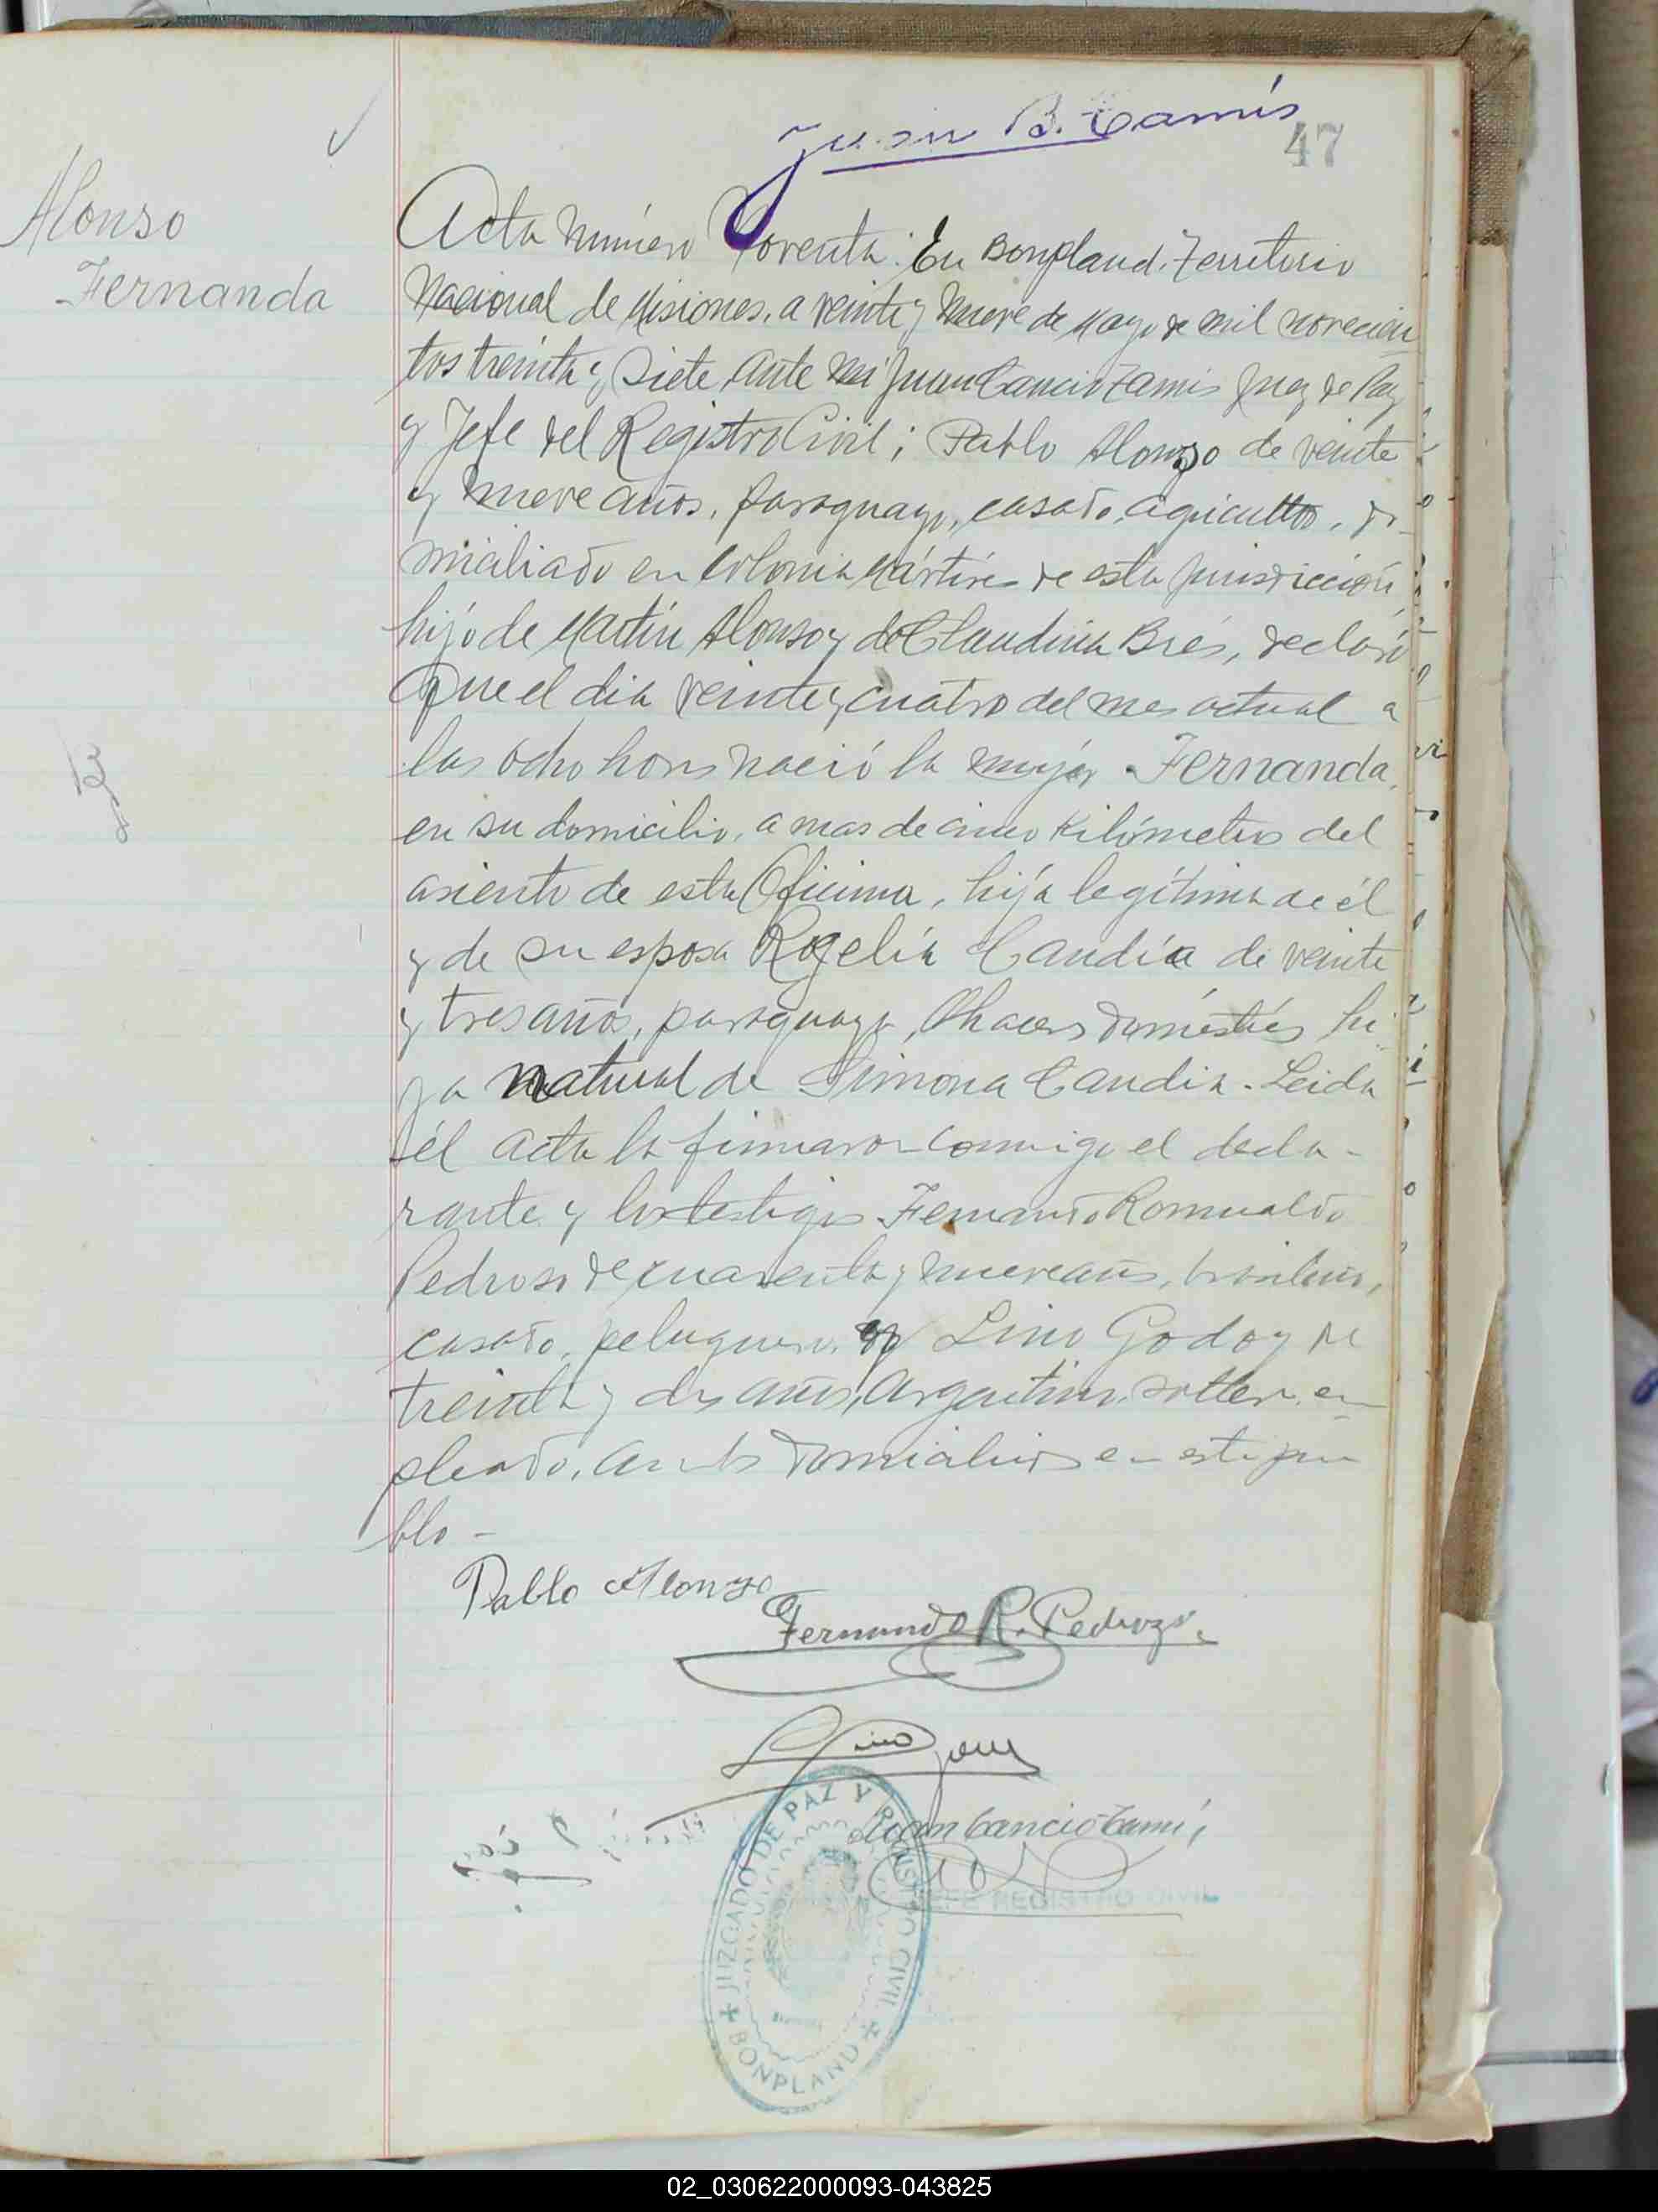 Juan B. Tamis
47
Alonso
Fernanda
Acta número Noventa: En Bonpland, Territorio
Nacional de Misiones, a veinte y nueve de Mayo de mil novecien
tos treinta y siete, ante mi Juan Cancio Tamis Juez de Paz
y Jefe del Registro Civil; Pablo Alonzo de veinte
y nueve años, paraguayo, casado, agricultor, do-
miciliado en Colonia Mártires de esta jurisdicción,
hijo de Martín Alonso y de Claudina Brés, declaró
Que el dia veinte y cuatro del mes actual a
las ocho horas nació la mujer Fernanda,
en su domicilio, a mas de cinco kilómetros del
asiento de esta Oficina, hija legítima de él
y de su esposa Rogelia Candía de veinte
y tres años, paraguaya, quehaceres domésticos, hi
ja natural de Simona Candia. Leida
el acta la firmaron conmigo el decla-
rante y los testigos Fernando Romualdo
Pedroso de cuarenta y nueve años, brasilero,
casado, peluquero, y Lino Godoy de
treinta y dos años, argentino, soltero, em
pleado, ambos domiciliados en este pue
blo -
Pablo Alonzo
Fernando R. Pedrozo.
Lino
Juan Cancio Tamis
JEFE REGISTRO CIVIL
JUZGADO DE PAZ Y REGISTRO CIVIL
BONPLAND
02_030622000093-043825